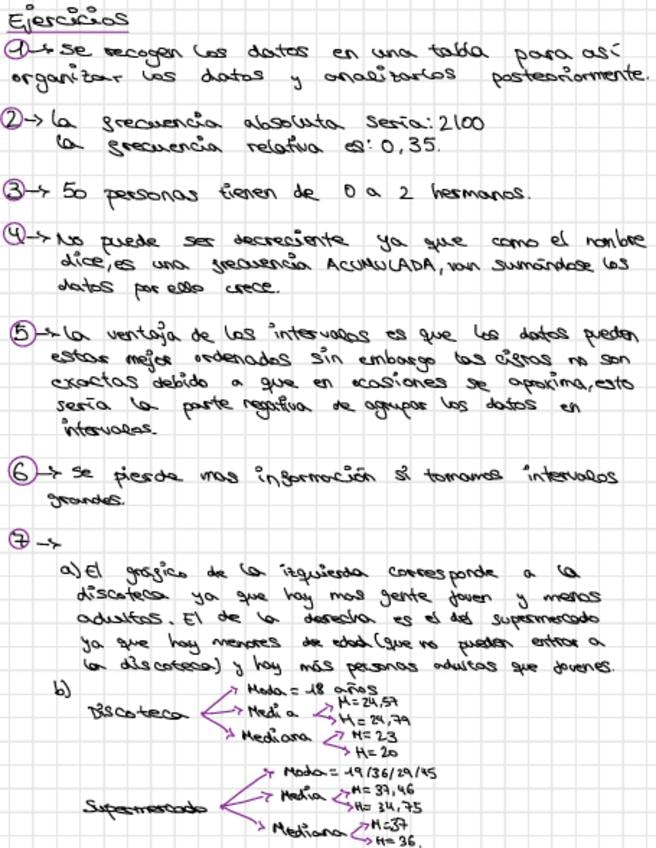 Ejercicios
1 → Se recogen los datos en una tabla para así
organizar los datos y analizarlos posteriormente.
2 → La frecuencia absoluta sería: 2100
La frecuencia relativa es: 0,35.
3 → 50 personas tienen de 0 a 2 hermanos.
4 → No puede ser decreciente ya que como el nombre
dice, es una frecuencia ACUMULADA, van sumándose los
datos por ello crece.
5 → La ventaja de los intervalos es que los datos pueden
estar mejor ordenados sin embargo las cifras no son
exactas debido a que en ocasiones se aproxima, esto
sería la parte negativa de agrupar los datos en
intervalos.
6 → Se pierde mas información si tomamos intervalos
grandes.
7 →
a) El gráfico de la izquierda corresponde a la
discoteca ya que hay mas gente joven y menos
adultos. El de la derecha es el del supermercado
ya que hay menores de edad (que no pueden entrar a
la discoteca) y hay más personas adultas que jovenes.
b)
Moda = 18 años
Discoteca Media M = 24,57
H = 24,79
Mediana M = 23
H = 20
Moda = 19/36/29/45
Supermercado Media M = 37,46
H = 34,75
Mediana M = 37
H = 36.